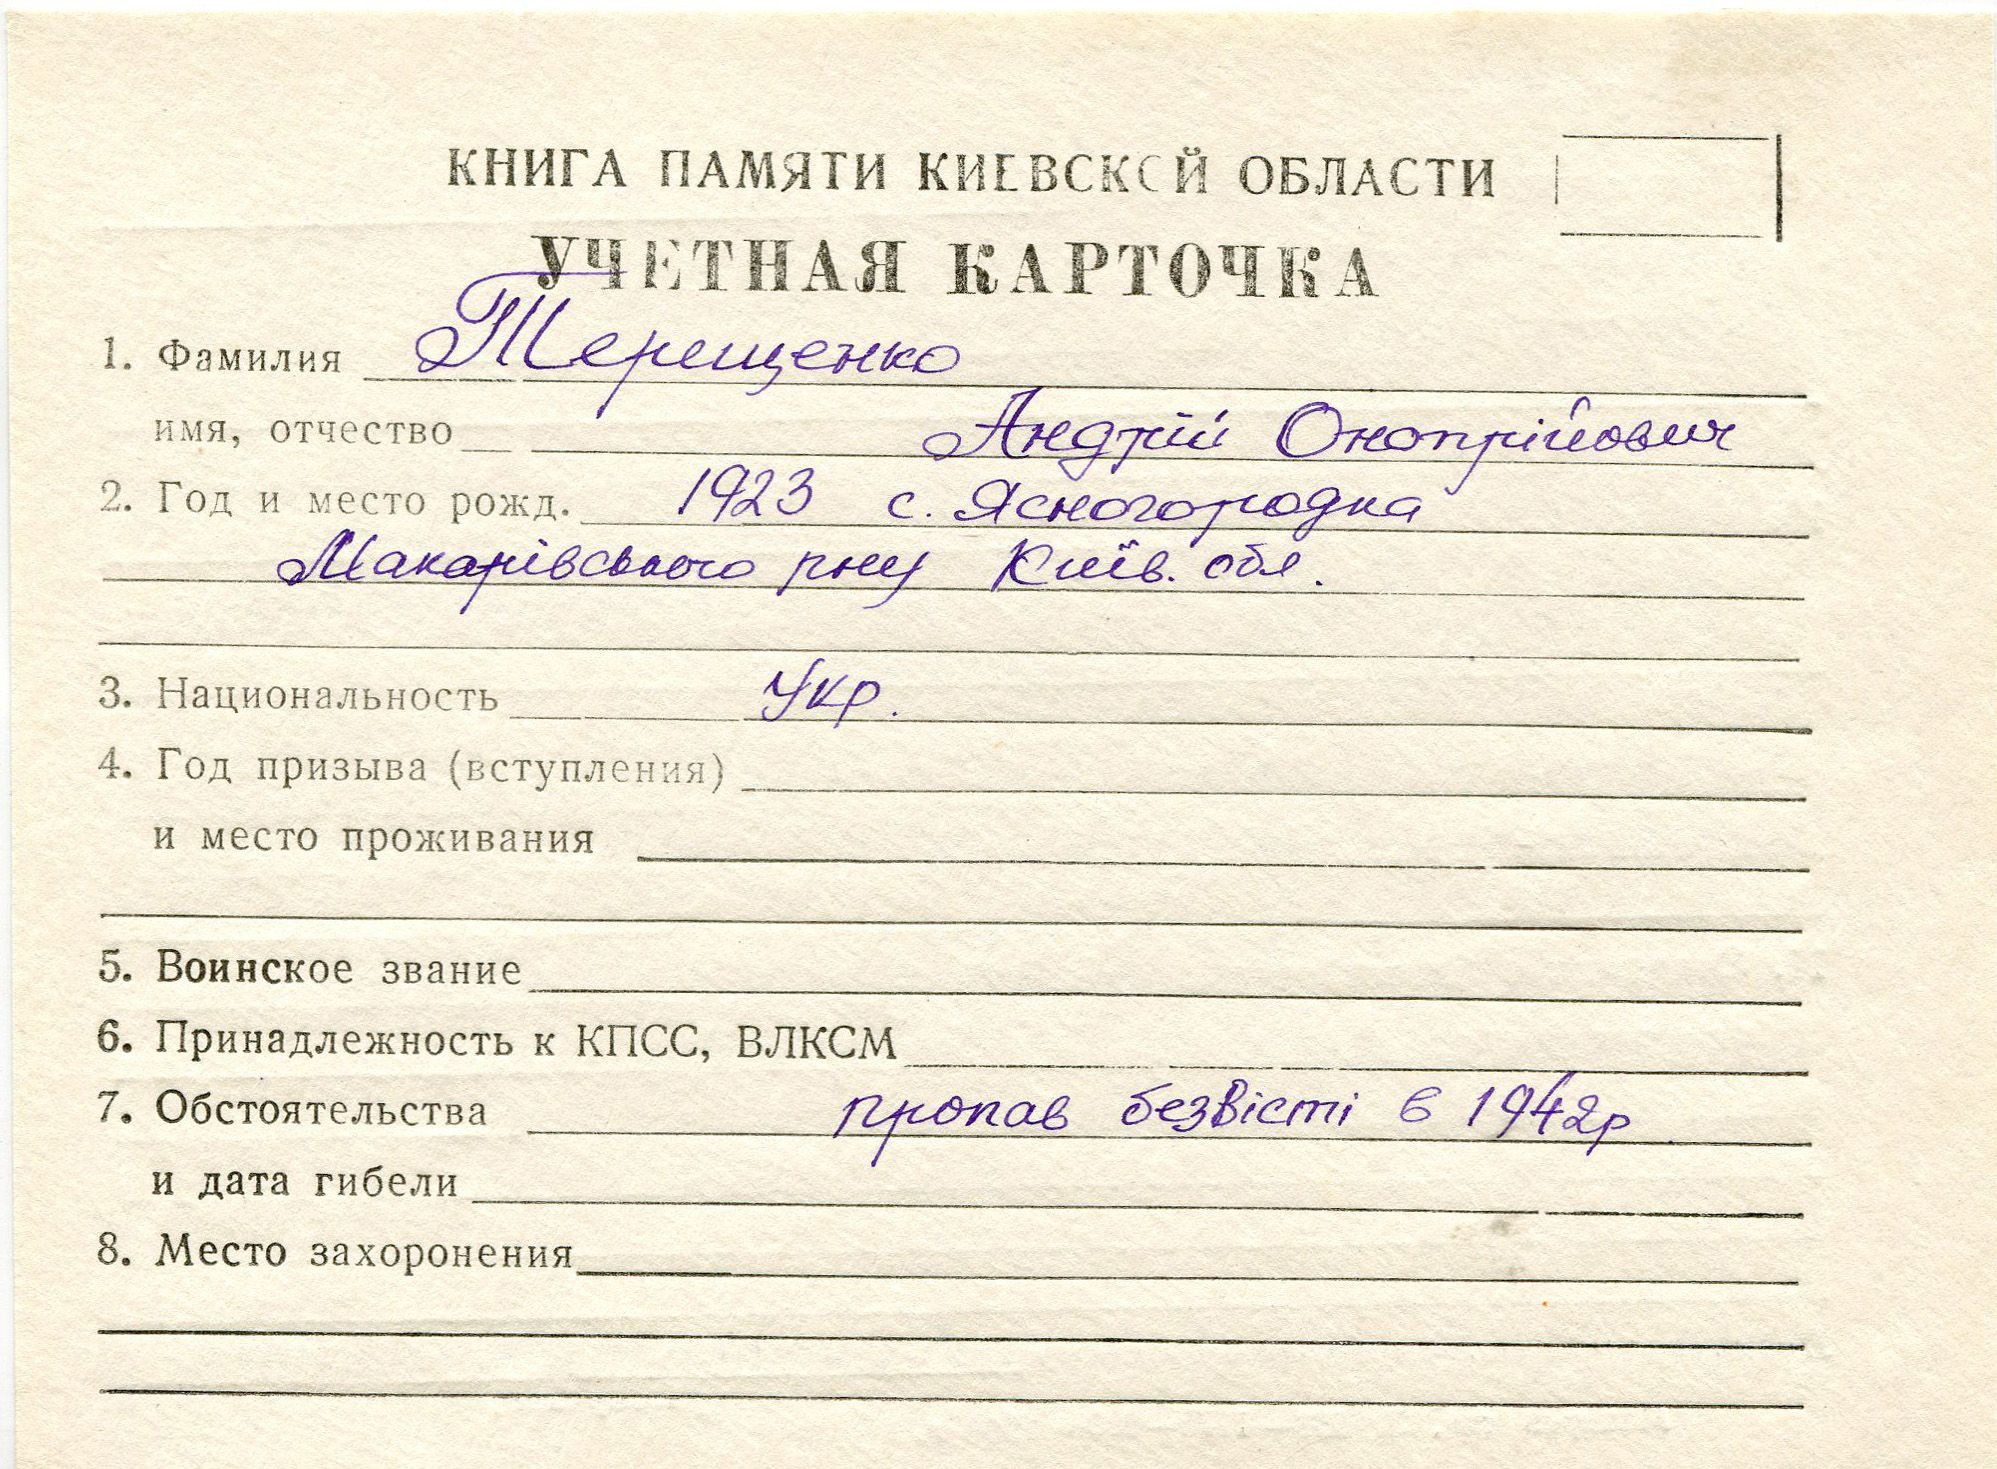 КНИГА ПАМЯТИ КИЕВСКОЙ ОБЛАСТИ
УЧЕТНАЯ КАРТОЧКА
1. Фамилия Терещенко
имя, отчество Андрій Онопрійович
2. Год и место рожд. 1923 с. Ясногородка
Макарівського рну Київ. обл.
3. Национальность Укр.
4. Год призыва (вступления)
и место проживания
5. Воинское звание
6. Принадлежность к КПСС, ВЛКСМ
7. Обстоятельства пропав безвісті в 1942р.
и дата гибели
8. Место захоронения